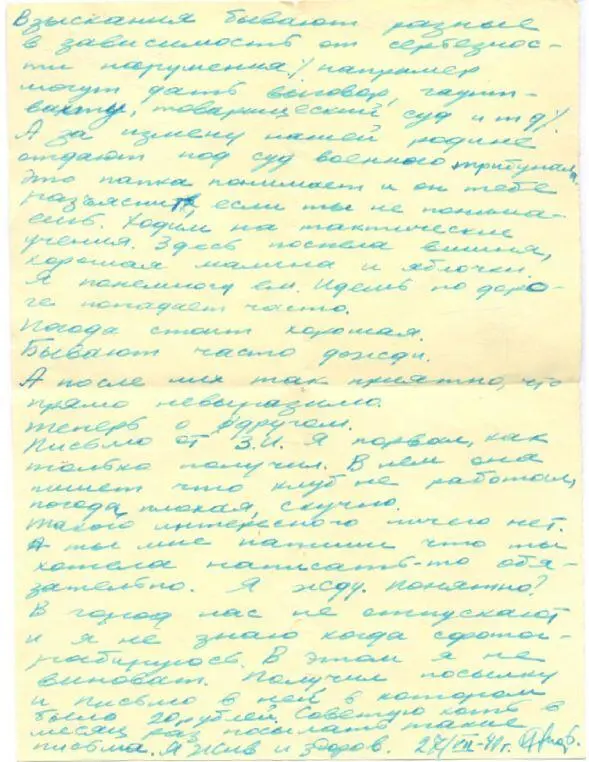 Взыскания бывают разные
в зависимость от серьезнос-
ти нарушения /: например
могут дать выговор, гаупт-
вахту, товарищеский суд и т д/.
А за измену нашей родине
отдают под суд военного трибунала.
Это папка понимает и он тебе
разъяснит, если ты не понима-
ешь. Ходим на тактические
учения. Здесь поспела вишня,
хорошая малина и яблочки.
Я понемногу ем. Идешь по доро-
ге попадает часто.
Погода стоит хорошая.
Бывают часто дожди.
А после них так приятно, что
прямо невыразимо.
Теперь о другом.
Письмо от З.И. я порвал, как
только получил. В нем она
пишет что клуб не работал,
погода плохая, скучно.
Такого интересного ничего нет.
А ты мне напиши что ты
хотела написать-то обя-
зательно. Я жду. Понятно?
В город нас не отпускают
и я не знаю когда сфотог-
рабируюсь. В этом я не
виноват. Получил посылку
и письмо в ней в котором
было 20 рублей. Советую хоть в
месяц раз посылать такие
письма. Я жив и здоров. 27/VII-41г.